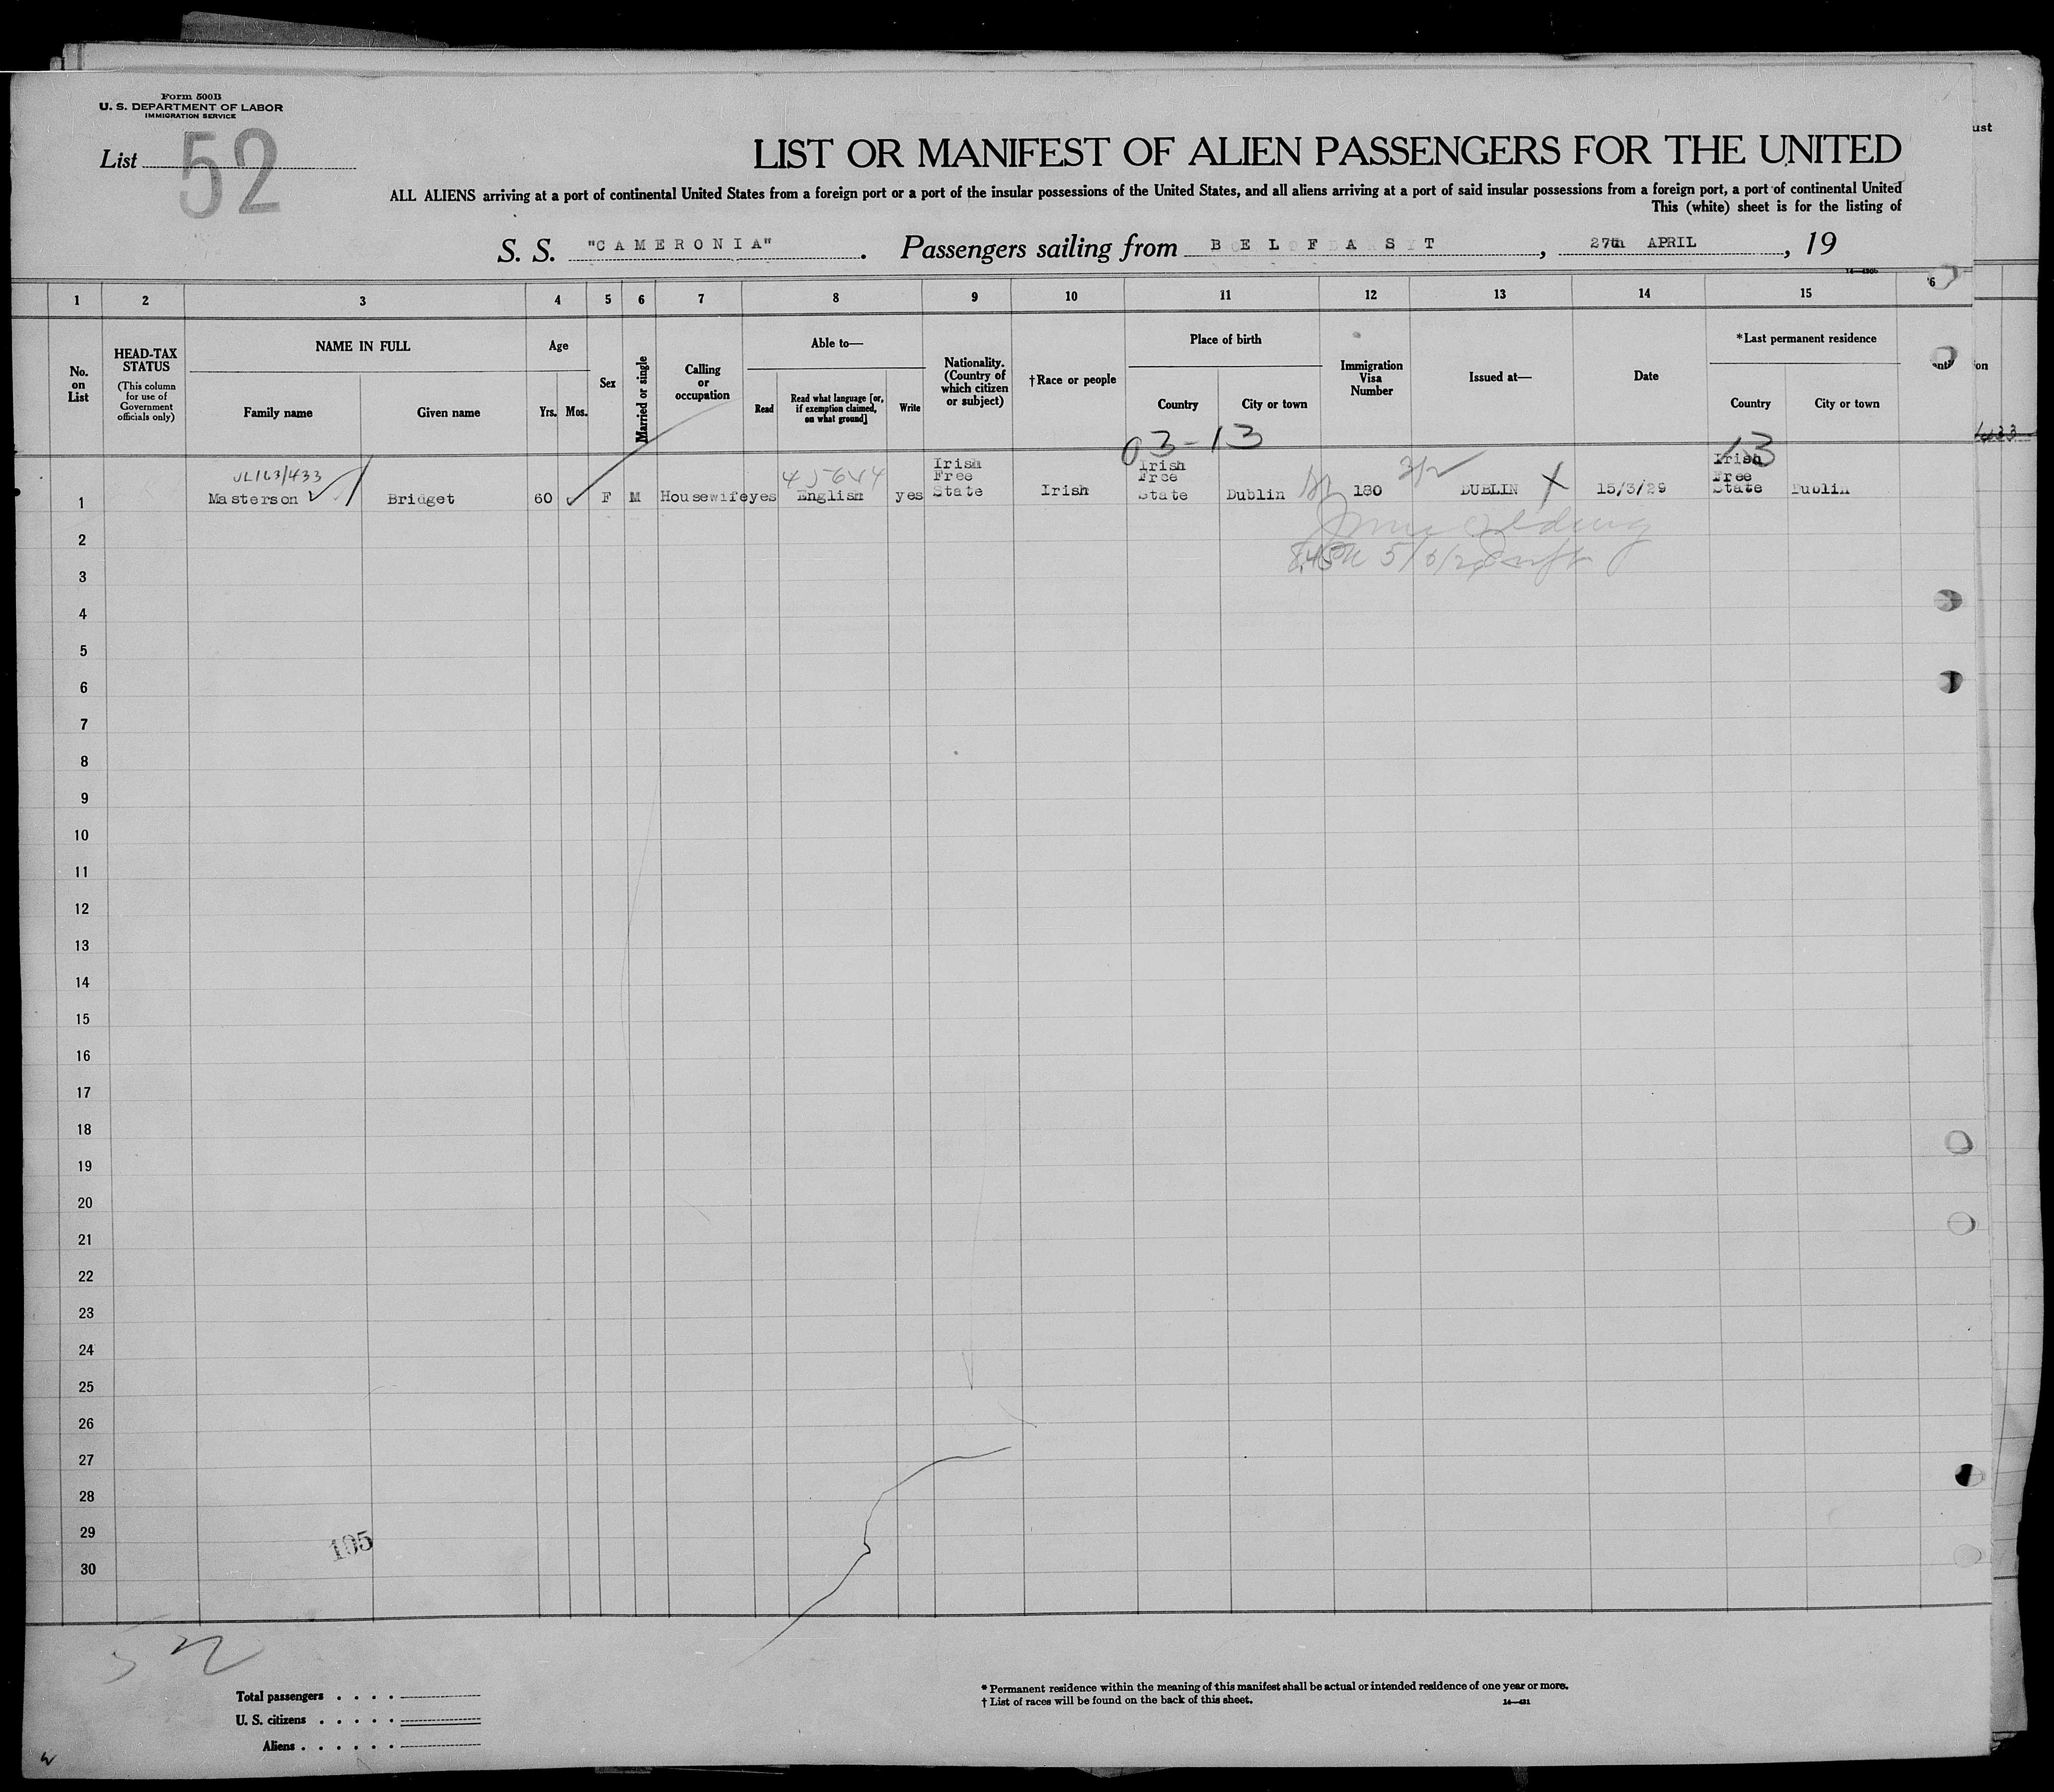 Form 500B
U. S. DEPARTMENT OF LABOR
IMMIGRATION SERVICE
List 52
LIST OR MANIFEST OF ALIEN PASSENGERS FOR THE UNITED
ALL ALIENS arriving at a port of continental United States from a foreign port or a port of the insular possessions of the United States, and all aliens arriving at a port of said insular possessions from a foreign port, a port of continental United
This (white) sheet is for the listing of
S. S. "CAMERONIA". Passengers sailing from BELFAST, 27th APRIL, 19
1 2 3 4 5 6 7 8 9 10 11 12 13 14 15
No. on List
HEAD-TAX STATUS
(This column for use of Government officials only)
NAME IN FULL
Family name
Given name
Age
Yrs.
Mos.
Sex
Married or single
Calling or occupation
Able to—
Read
Read what language [or, if exemption claimed, on what ground]
Write
Nationality. (Country of which citizen or subject)
†Race or people
Place of birth
Country
City or town
Immigration Visa Number
Issued at—
Date
*Last permanent residence
Country
City or town
03-13
13
VL163/433
45644
1 Masterson Bridget 60 F M Housewife yes English yes Irish Free State Irish Irish Free State Dublin 180 DUBLIN X 15/3/29 Irish Free State Dublin
2
3
4
5
6
7
8
9
10
11
12
13
14
15
16
17
18
19
20
21
22
23
24
25
26
27
28
29
30
105
52
Total passengers
U. S. citizens
Aliens
* Permanent residence within the meaning of this manifest shall be actual or intended residence of one year or more.
† List of races will be found on the back of this sheet.
14—431